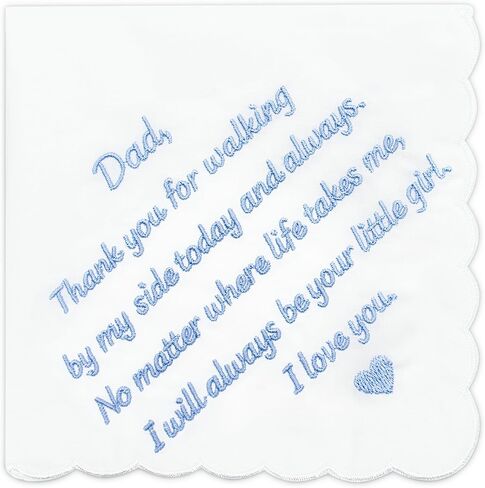 Dad,
Thank you for walking
by my side today and always.
No matter where life takes me,
I will always be your little girl.
I love you.